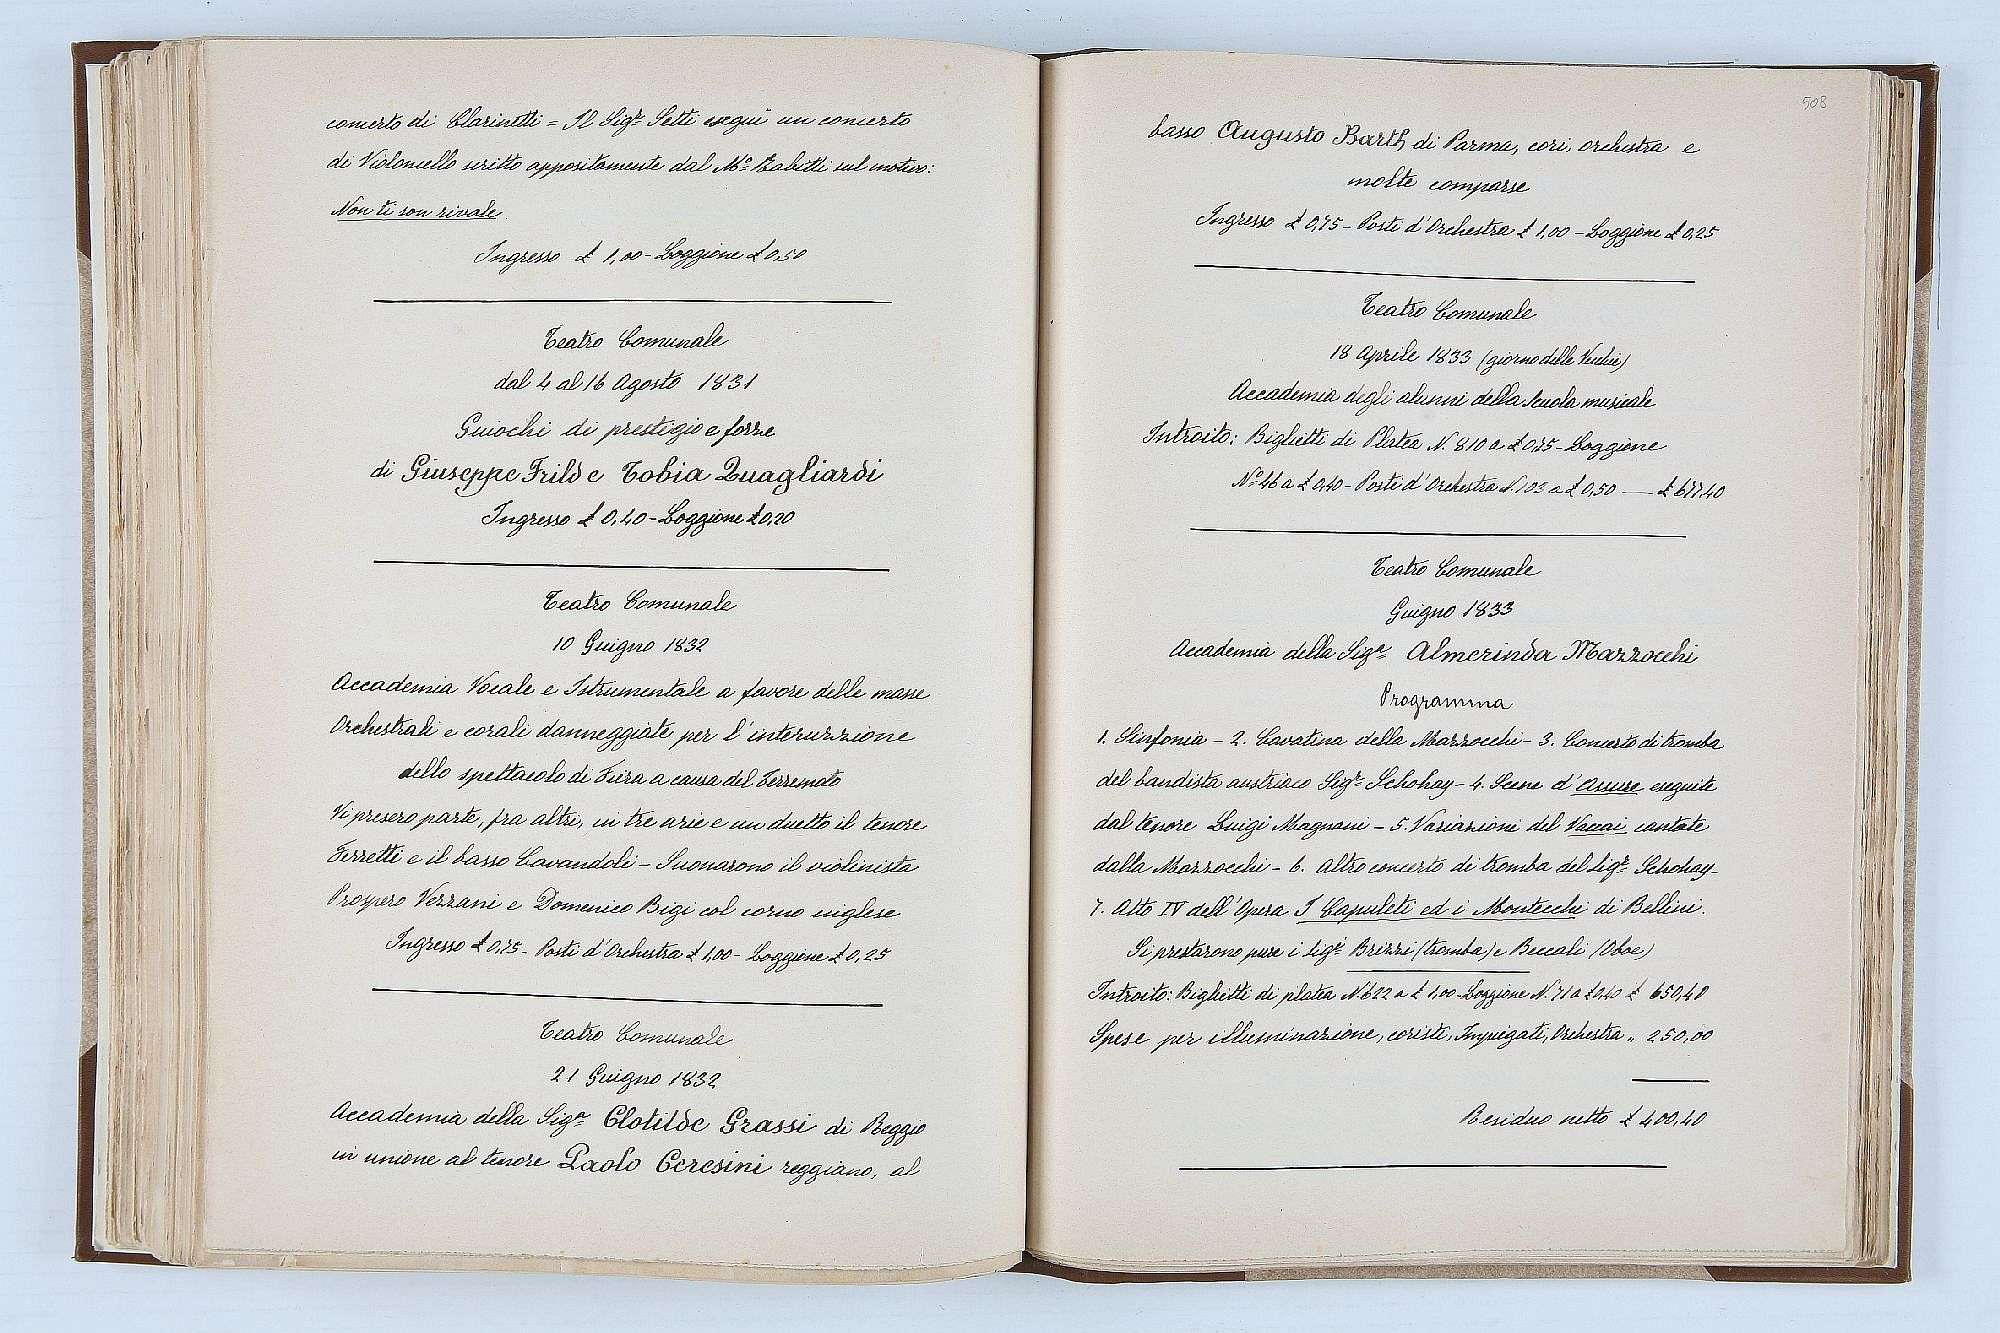 concerto di Clarinetti = Il Sigr Setti eseguì un concerto
di Violoncello scritto appositamente dal Mo Rabitti sul motivo:
Non ti son rivale.
Ingresso £ 1,00 - Loggione £ 0,50
Teatro Comunale
dal 4 al 16 Agosto 1831
Guiochi di prestigio e forze
di Giuseppe Frild e Tobia Quagliardi
Ingresso £ 0,40 - Loggione £ 0,20
Teatro Comunale
10 Giugno 1832
Accademia Vocale e Istrumentale a favore delle masse
Orchestrali e corali danneggiate per l'interuzzione
dello spettacolo di Fiera a causa del Terremoto
Vi presero parte, fra altri, in tre arie e un duetto il tenore
Ferretti e il basso Cavandoli - Suonarono il violinista
Prospero Vezzani e Domenico Bigi col corno inglese
Ingresso £ 0,75 - Posti d'Orchestra £ 1,00 - Loggione £ 0,25
Teatro Comunale
21 Giugno 1832
Accademia della Siga Clotilde Grassi di Reggio
in unione al tenore Paolo Ceresini reggiano, al
508
basso Augusto Barth di Parma, cori, orchestra e
molte comparse
Ingresso £ 0,75 - Posti d'Orchestra £ 1,00 - Loggione £ 0,25
Teatro Comunale
18 Aprile 1833 (giorno delle Vecchie)
Accademia degli alunni della Scuola musicale
Introito: Biglietti di Platea N. 810 a £ 0,75 - Loggione
No 46 a £ 0,40 - Poste d'Orchestra N. 103 a £ 0,50 — £ 677,40
Teatro Comunale
Guigno 1833
Accademia della Siga Almerinda Mazzocchi
Programma
1. Sinfonia - 2. Cavatina della Mazzocchi - 3. Concerto di tromba
del bandista austriaco Sigr Schohay - 4. Scene d'Assure eseguite
dal tenore Luigi Magnani - 5. Variazioni del Vaccai cantate
dalla Mazzocchi - 6. Altro concerto di tromba del Sigr Schohay -
7. Atto IV dell'Opera I Capuleti ed i Montecchi di Bellini.
Si prestarono pure i Sigri Brizzi (tromba) e Beccali (Oboe)
Introito: Biglietti di platea No 622 a £ 1,00 - Loggione N. 71 a £ 0,40 £ 650,40
Spese per illuminazione, coristi, Impiegati, Orchestra „ 250,00
Residuo netto £ 400,40